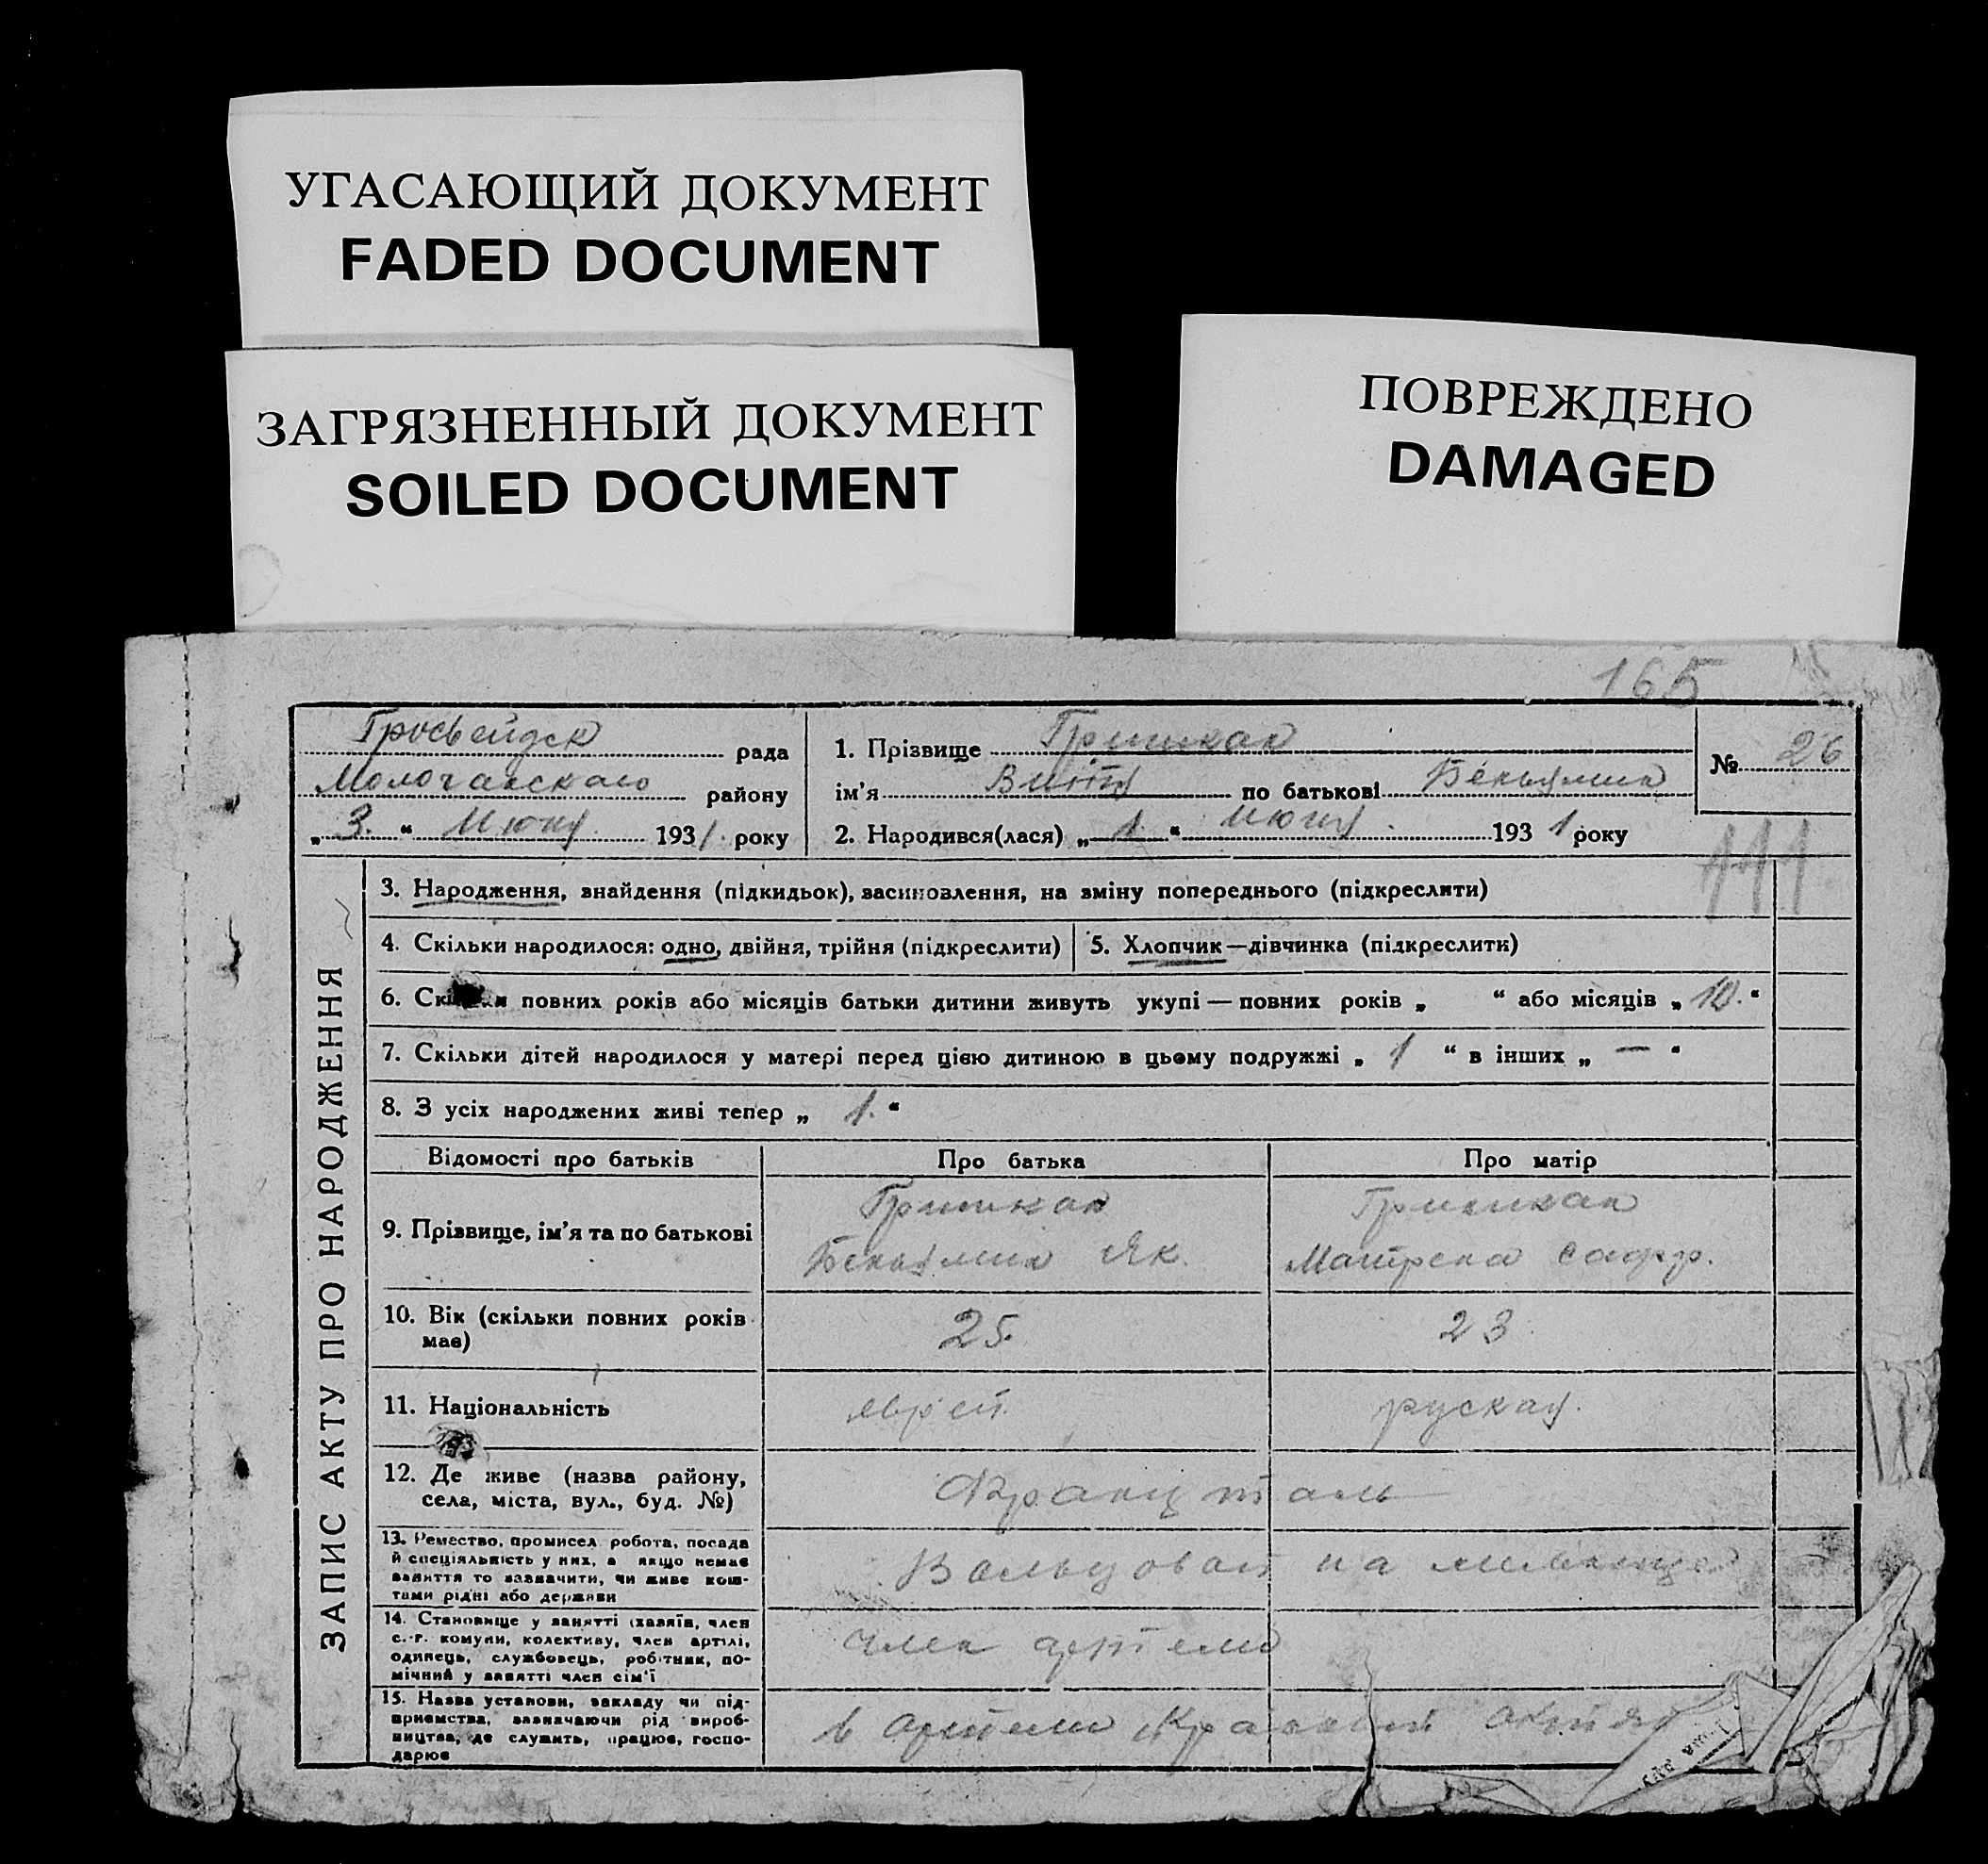 УГАСАЮЩИЙ ДОКУМЕНТ
FADED DOCUMENT
ЗАГРЯЗНЕННЫЙ ДОКУМЕНТ
SOILED DOCUMENT
ПОВРЕЖДЕНО
DAMAGED
165
рада
Молочанского району
„ 3. “ Июня 1931. року
1. Прізвище
ім'я по батькові
2. Народився(лася) „ 1. “ Июня. 1931 року
№ 26
111
ЗАПИС АКТУ ПРО НАРОДЖЕННЯ
3. Народження, знайдення (підкидьок), засиновлення, на зміну попереднього (підкреслити)
4. Скільки народилося: одно, двійня, трійня (підкреслити)
5. Хлопчик—дівчинка (підкреслити)
6. повних років або місяців батьки дитини живуть укупі — повних років „ “ або місяців „ 10. “
7. Скільки дітей народилося у матері перед цією дитиною в цьому подружжі „ 1 “ в інших „ — “
8. З усіх народжених живі тепер „ 1. “
Відомості про батьків
Про батька
Про матір
9. Прізвище, ім'я та по батькові
Як.
Матрена
10. Вік (скільки повних років має)
25.
23.
11. Національність
яврей.
руская.
12. Де живе (назва району, села, міста, вул., буд. №)
13. Ремество, промисел робота, посада
й спеціяльність у них, а якщо немає
заняття то зазначити, чи живе кош-
тами рідні або держави
Вальцовой на
14. Становище у занятті (хазяїн, член
с.-г. комуни, колективу, член артілі,
одинець, службовець, робітник, по-
мічний у занятті член сім'ї
член артели
15. Назва установи, закладу чи під-
приємства, зазначаючи рід вироб-
ництва, де служить, працює, госпо-
дарює
в артели